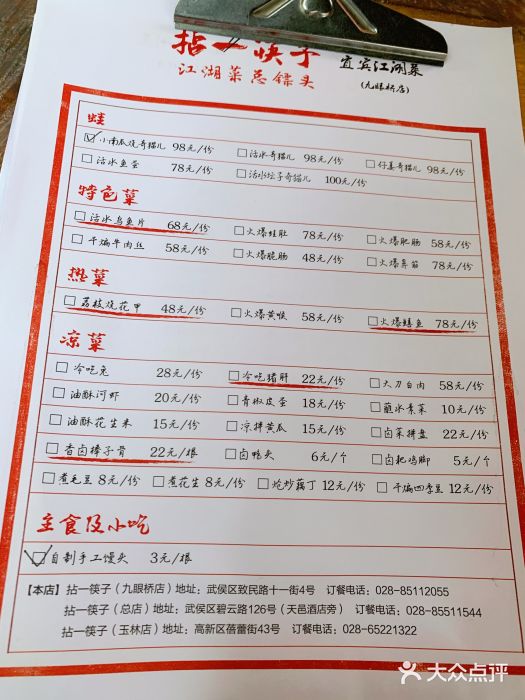 拈一筷子 宜宾江湖菜
江湖菜总镖头 (九眼桥店)
蛙
小南瓜烧奇猫儿 98元/份 活水奇猫儿 98元/份 仔姜奇猫儿 98元/份
活水鱼蛋 78元/份 活水坛子奇猫儿 100元/份
特色菜
活水乌鱼片 68元/份 火爆鲑肚 78元/份 火爆肥肠 58元/份
干煸牛肉丝 58元/份 火爆脆肠 48元/份 火爆鼻筋 78元/份
热菜
荔枝烧花甲 48元/份 火爆黄喉 58元/份 火爆鳝鱼 78元/份
凉菜
冷吃兔 28元/份 冷吃猪肝 22元/份 大刀白肉 58元/份
油酥河虾 20元/份 青椒皮蛋 18元/份 蘸水素菜 10元/份
油酥花生米 15元/份 凉拌黄瓜 15元/份 卤菜拼盘 22元/份
香卤棒子骨 22元/根 卤鸭头 6元/个 卤耙鸡脚 5元/个
煮毛豆 8元/份 煮花生 8元/份 炝炒藕丁 12元/份 干煸四季豆 12元/份
主食及小吃
自制手工馒头 3元/根
【本店】拈一筷子（九眼桥店）地址：武侯区致民路十一街4号 订餐电话：028-85112055
拈一筷子（总店）地址：武侯区碧云路126号（天邑酒店旁） 订餐电话：028-85511544
拈一筷子（玉林店）地址：高新区蓓蕾街43号 订餐电话：028-65221322
大众点评